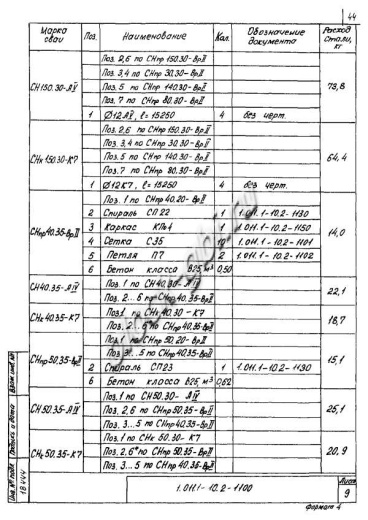 44
Марка сваи | Поз. | Наименование | Кол. | Обозначение документа | Расход стали, кг
СН150.30-АIV | 73,8
Поз. 2,6 по СНпр 150.30-ВрII
Поз. 3,4 по СНпр 30.30-ВрII
Поз. 5 по СНпр 140.30-ВрII
Поз. 7 по СНпр 80.30-ВрII
1 | Ø12АIV, ℓ=15250 | 4 | без черт.
СНк 150.30-К7 | 64,4
Поз. 2,6 по СНпр 150.30-ВрII
Поз. 3,4 по СНпр 30.30-ВрII
Поз. 5 по СНпр 140.30-ВрII
Поз. 7 по СНпр 80.30-ВрII
1 | Ø12К7, ℓ=15250 | 4 | без черт.
СНпр 40.35-ВрII | 14,0
Поз. 1 по СНпр 40.20-ВрII
2 | Спираль СП22 | 1 | 1.011.1-10.2-1130
3 | Каркас КПн4 | 1 | 1.011.1-10.2-1150
4 | Сетка С35 | 10 | 1.011.1-10.2-1101
5 | Петля П7 | 2 | 1.011.1-10.2-1102
6 | Бетон класса В25, м³ | 0,50
СН40.35-АIV | 22,1
Поз. 1 по СН40.30-АIV
Поз. 2...6 по СНпр 40.35-ВрII
СНк 40.35-К7 | 18,7
Поз. 1 по СНк 40.30-К7
Поз. 2...6 по СНпр 40.35-ВрII
СНпр 50.35-ВрII | 15,1
Поз. 1 по СНпр 50.20-ВрII
Поз. 3...5 по СНпр 40.35-ВрII
2 | Спираль СП23 | 1 | 1.011.1-10.2-1130
6 | Бетон класса В25, м³ | 0,62
СН50.35-АIV | 25,1
Поз. 1 по СН50.30-АIV
Поз. 2,6 по СНпр 50.35-ВрII
Поз. 3...5 по СНпр 40.35-ВрII
СНк 50.35-К7 | 20,9
Поз. 1 по СНк 50.30-К7
Поз. 2,6 по СНпр 50.35-ВрII
Поз. 3...5 по СНпр 40.35-ВрII
Инв. № подл.
Подпись и дата
Взам. инв. №
1.011.1-10.2-1100
Лист
9
Формат 4